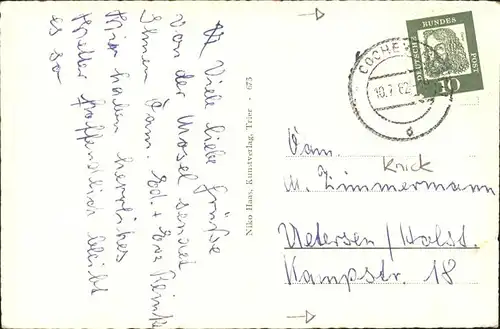 Viele liebe Grüße
von der Mosel sendet
Ihnen Fam. Ed. + Eva Reink
Wir haben herrliches
Wetter hoffentlich bleibt
es so
Niko Haas, Kunstverlag, Trier - 675
COCHEM
10.7.62
d
DEUTSCHE
BUNDES
POST
10
Fam.
Knick
M. Zimmermann
Uetersen/Holst.
Kampstr. 18